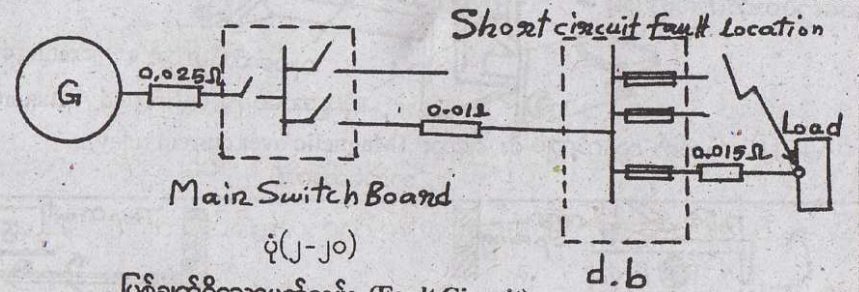 Short circuit fault Location
G
0.025Ω
0.01Ω
0.015Ω
Load
Main Switch Board
d.b
ပုံ(၂-၂၀)
(Fault Circuit)